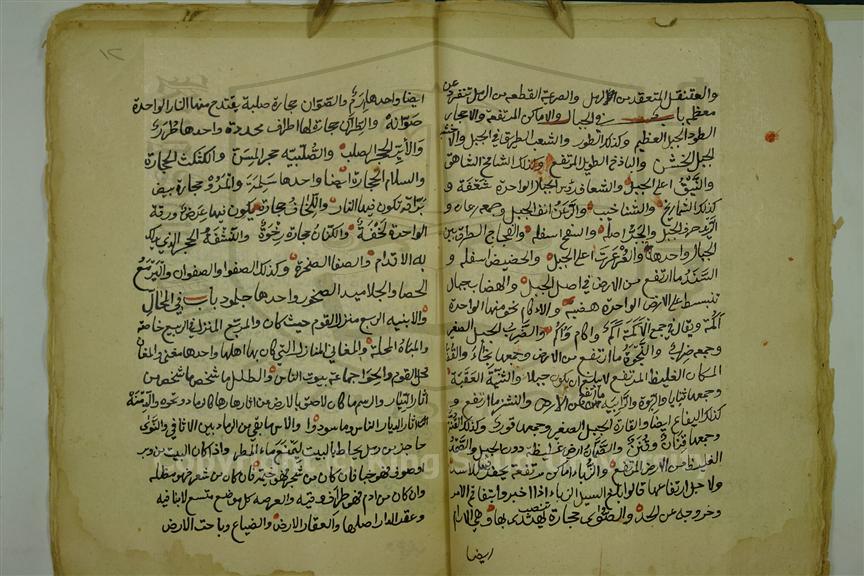 والعقنقل المتعقد من الرمل والصريمة القطعة من الرمل تنفرد عن
معظم باب في الجبال والاماكن المرتفعة والاحجار
الطود الجبل العظيم وكذلك الطور والشعب الطريق في الجبل والاخشب
الجبل الخشن والباذخ الطويل المرتفع وكذلك الشامخ الشاهق
والنيق اعلى الجبل والشعاف رؤس الجبال الواحدة شعفة و
كذلك الشماريخ والشناخيب والرعن انف الجبل وجمعه رعان و
الريد حرف الجبل والجر اصله والسفح اسفله والفجاج الطرق بين
الجبال واحدها فج والعرعرة اعلى الجبل والحضيض اسفله و
السند ما ارتفع من الارض في اصل الجبل والهضاب جبال
تنبسط على الارض الواحدة هضبة والاكام نحو منها الواحدة
اكمة ويقال في جمع الاكمة اكم واكام واكم والضرب الجبل الصغير
وجمعه ضراب والنجوة ما ارتفع من الارض وجمعها نجاء والقف
المكان الغليظ المرتفع لا يبلغ ان يكون جبلا والثنية العقبة
وجمعها ثنايا والربوة والرابية ما ارتفع من الارض والنشز ما ارتفع و
كذلك اليفاع ايضا والقارة الجبل الصغير وجمعها قور وكذلك القنة
وجمعها قنان وقنن والارض غليظة دون الجبل
الغليظ من الارض المرتفع والزباء اماكن مرتفعة تحفر للاسد
ولاجل ارتفاعها قالوا بلغ السيل الزباء اذا اخبروا بتفاقم الامر
وخروجه عن الحد والصوى حجارة تنصب يهتدى بها وهي الارام
ايضا
١٢
ايضا واحدها ارم والصوان حجارة صلبة يقتدح منها النار الواحدة
صوانة والظران حجارة لها اطراف محددة واحدها ظرر
والاير الحجر الصلب والصلبية حجر المسن والكثكث الحجارة
والسلام الحجارة ايضا واحدها سلمة والمرو حجارة بيض
براقة تكون فيها النار واللخاف حجارة يكون فيها عرض ورقة
الواحدة لخفة والكذان حجارة رخوة والنشفة الحجر الذي يدلك
به الاقدام والصفا الصخرة وكذلك الصفوا والصفوان واليرمع
الحصا والجلاميد الصخور واحدها جلمود باب في المحال
والابنية الربع منزل القوم حيث كان والمربع المنزل في الربيع خاصة
والمباة المحلة والمغاني المنازل التي كان بها اهلها واحدها مغنى والمغان
محل القوم والحواء جماعة بيوت الناس والطلل ما شخص ما شخص من
اثار الديار والرسم ما كان لاصق بالارض من اثارها والدمنة
اثار الديار الناس وما سودوا والاس ما بقي من الرماد بين الاثافي والنؤى
حاجز من رمل يحاط بالبيت ليمنعه ماء المطر واذ كان البيت من وبر
او صوف فهو خبا فان كان من شجر فهو خيمة فان كان من شعر فهو مظلة
وان كان من ادم فهو طراف وقبة والعرصة كل موضع متسع لا بنا فيه
وعقر الدار اصلها والعقار الارض والضياع وباحت الارض